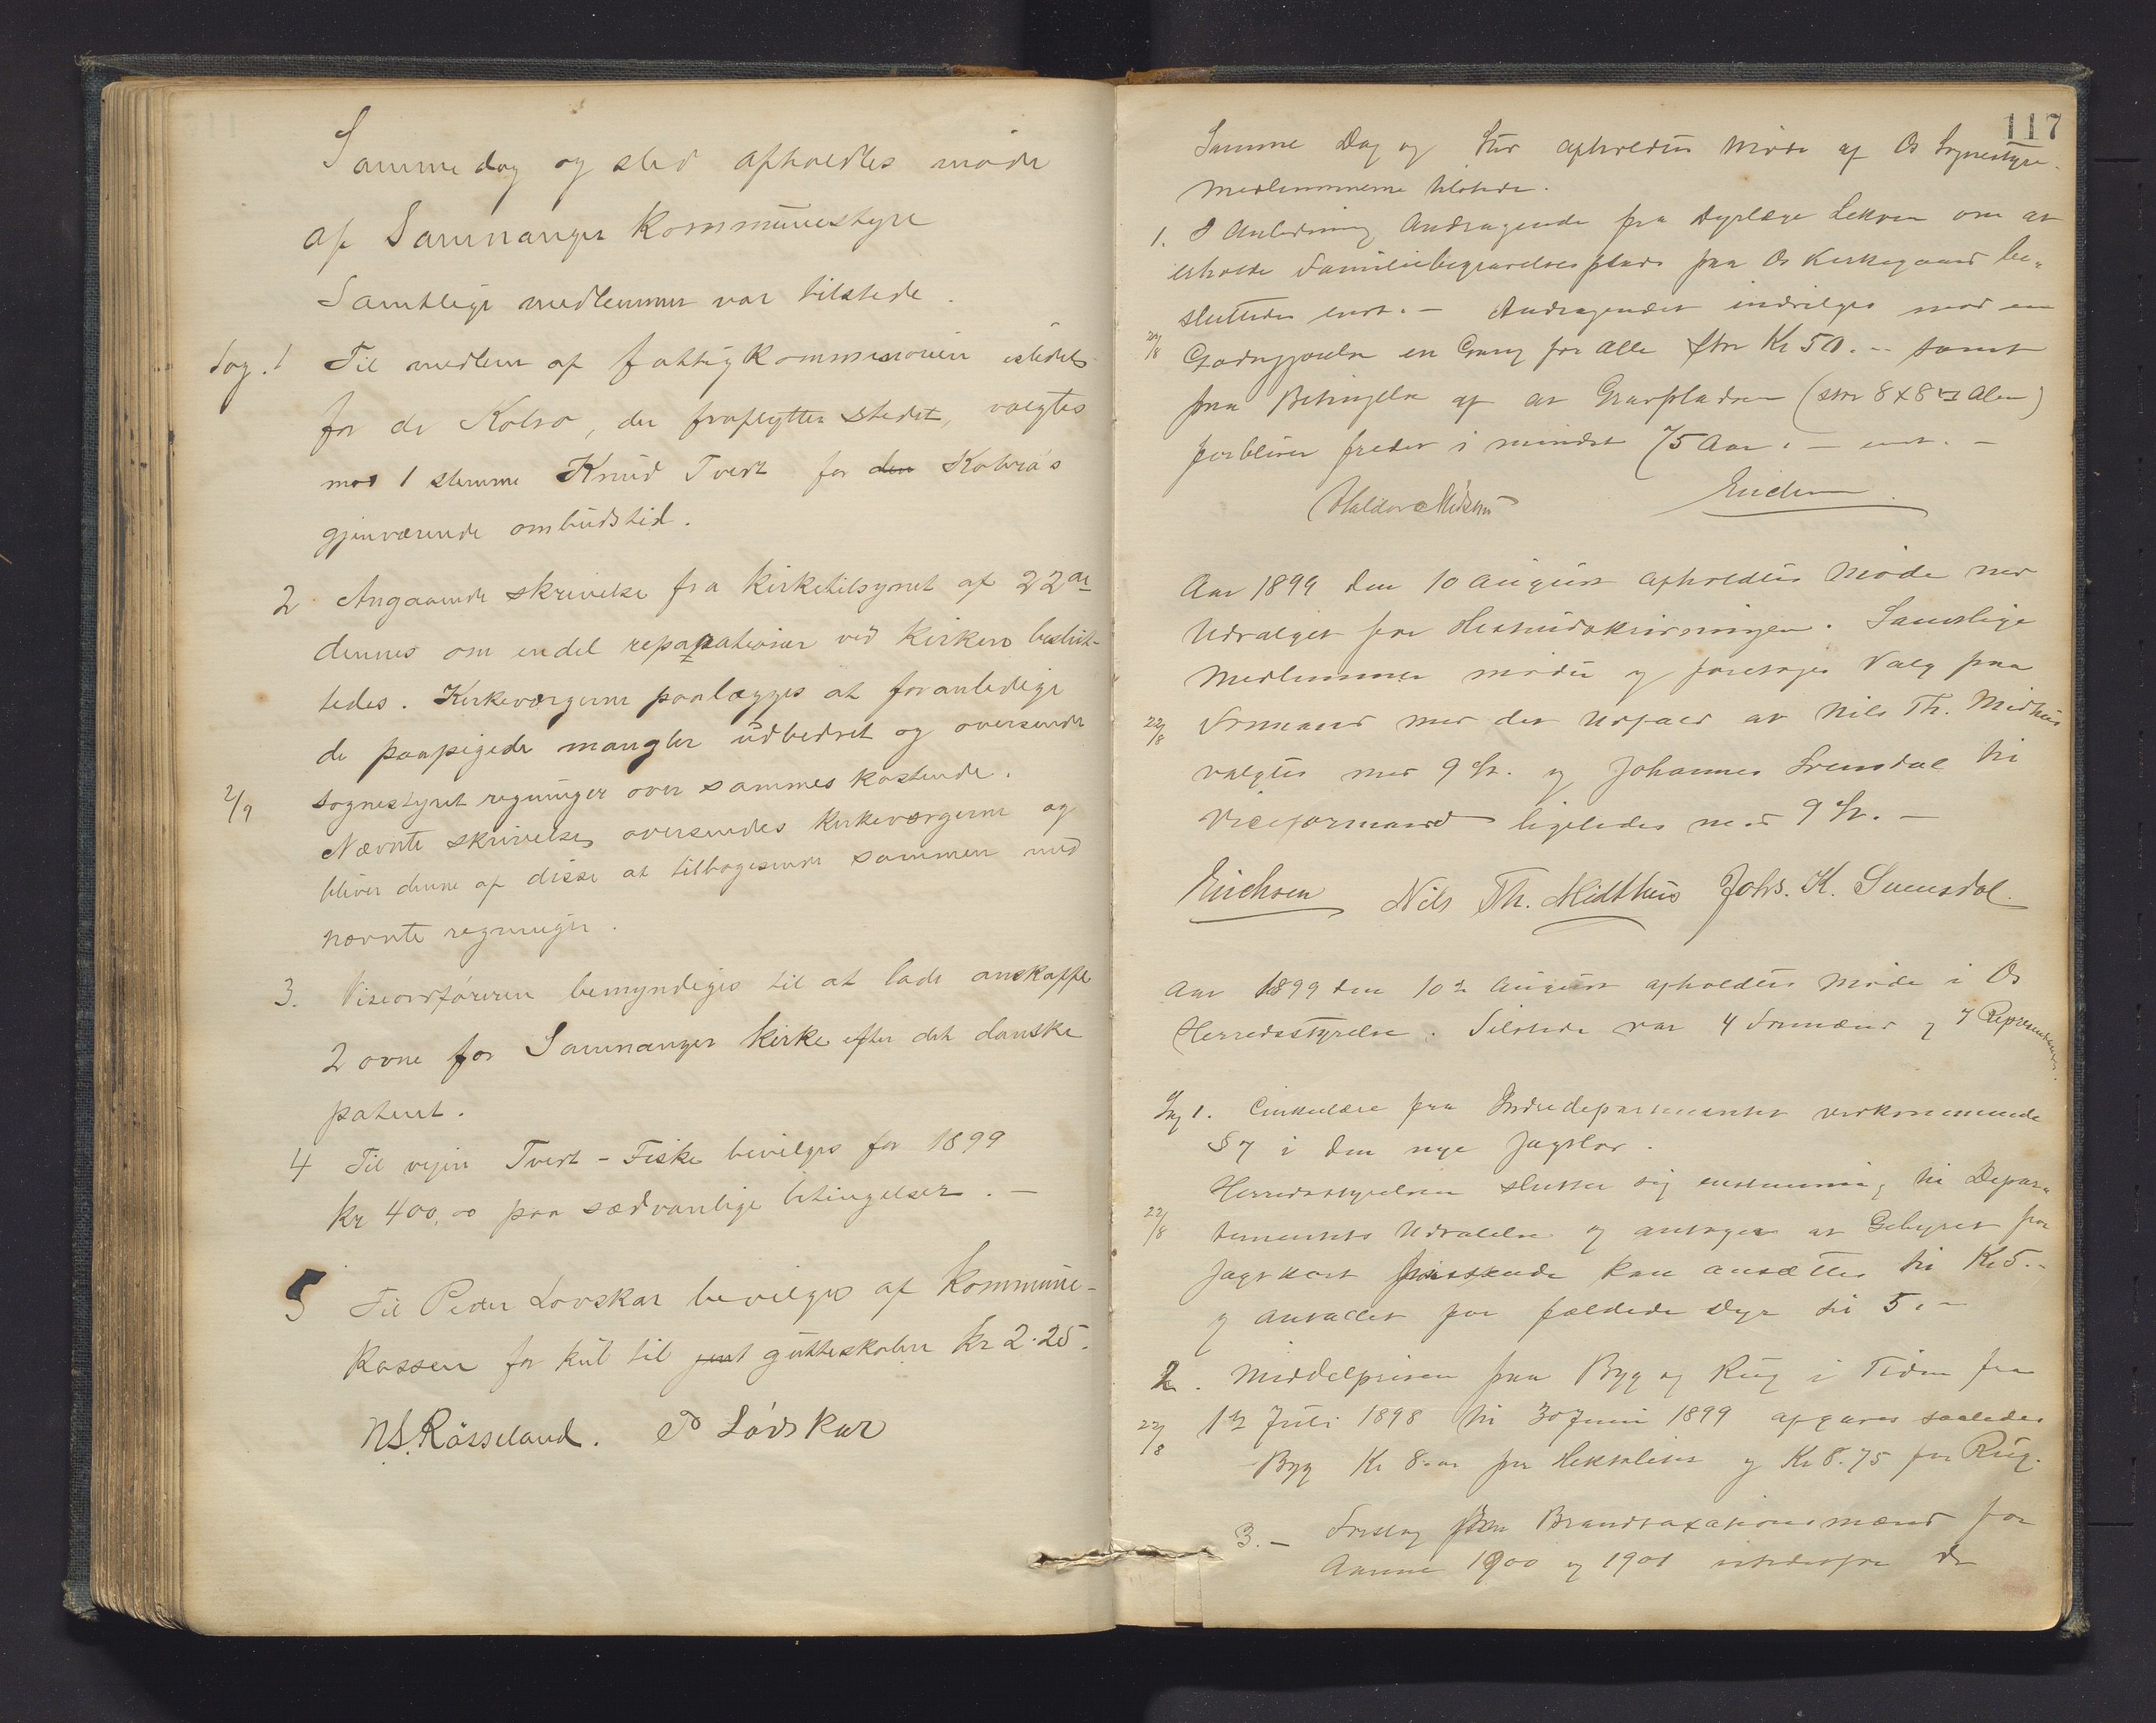 Samme dag og sted afholdtes møde
af Samnanger Kommunestyre
Samtlige medlemmer var tilstede.
Sag. 1 Til medlem af fattigkommissionen istedet
for dr Kolrø, der fraflytter stedet, valgtes
mod 1 stemme Knud Tvert for den Kolrø's
gjenværende ombudstid.
2 Angaaende skrivelse fra kirketilsynet af 22de
dennes om endel reparationer ved kirken beslut-
tedes. Kirkeværgerne paalægges at foranledige
de paapegede mangler udbedret og oversende
2/9 sognestyret regninger over sammes kostende.
Nævnte skrivelse oversendes kirkeværgerne og
bliver denne af disse at tilbagesende sammen med
nævnte regninger.
3. Viseordføreren bemyndiges til at lade anskaffe
2 ovne for Samnanger kirke efter det danske
patent.
4 Til veien Tvert - Fiske bevilges for 1899
kr 400,00 paa sædvanlige betingelser. -
5 Til Peder Lovskar bevilges af kommune-
kassen for kul til gutteskolen kr 2.25.
N.S. Røsseland. P Løvskar
117
Samme Dag og Sted afholdtes Møde af Os Sognestyre.
Medlemmerne tilstede.
1. I Anledning Andragende fra Dyrlæge Lekven om at
erholde Familiebegravelsesplads paa Os Kirkegaard be-
sluttedes enst. - Andragendet indvilges mod en
22/8 Godtgjørelse en Gang for alle stor Kr 50. - samt
paa Betingelse af at Gravpladsen (stor 8 x 8 Alen)
forbliver fredet i mindst 75 Aar. - enst. -
Haldor Midsæn Erichsen
Aar 1899 den 10 August afholdtes Møde med
Udvalget for Hesteudskrivningen. Samtlige
Medlemmer mødte og foretoges Valg paa
22/8 Formand med det Udfald at Nils Th. Midthus
valgtes med 9 St. og Johannes Svensdal til
Viceformand ligeledes med 9 St. -
Erichsen Nils Th. Midthus Johs. K. Svensdal.
Aar 1899 den 10de August afholdtes Møde i Os
Herredsstyrelse. Tilstede var 4 Formænd og 7 Repræsentanter.
Sag 1. Cirkulære fra Indredepartementet vedkommende
§ 7 i den nye Jagtlov.
Herredsstyrelsen slutter sig enstemmig til Depar-
22/8 tementets Udtalelse og antager at Gebyret for
Jagtkort kan ansættes til Kr 5.-
og Antallet for fældede Dyr til 5. -
2. Middelprisen paa Byg og Rug i Tiden fra
22/8 1ste Juli 1898 til 30 Juni 1899 afgaves saaledes
Byg Kr 8.00 per Hektoliter og Kr 8.75 for Rug.
3. - Forslag Brandtaxationsmænd for
Aarene 1900 og 1901 istedetfor de